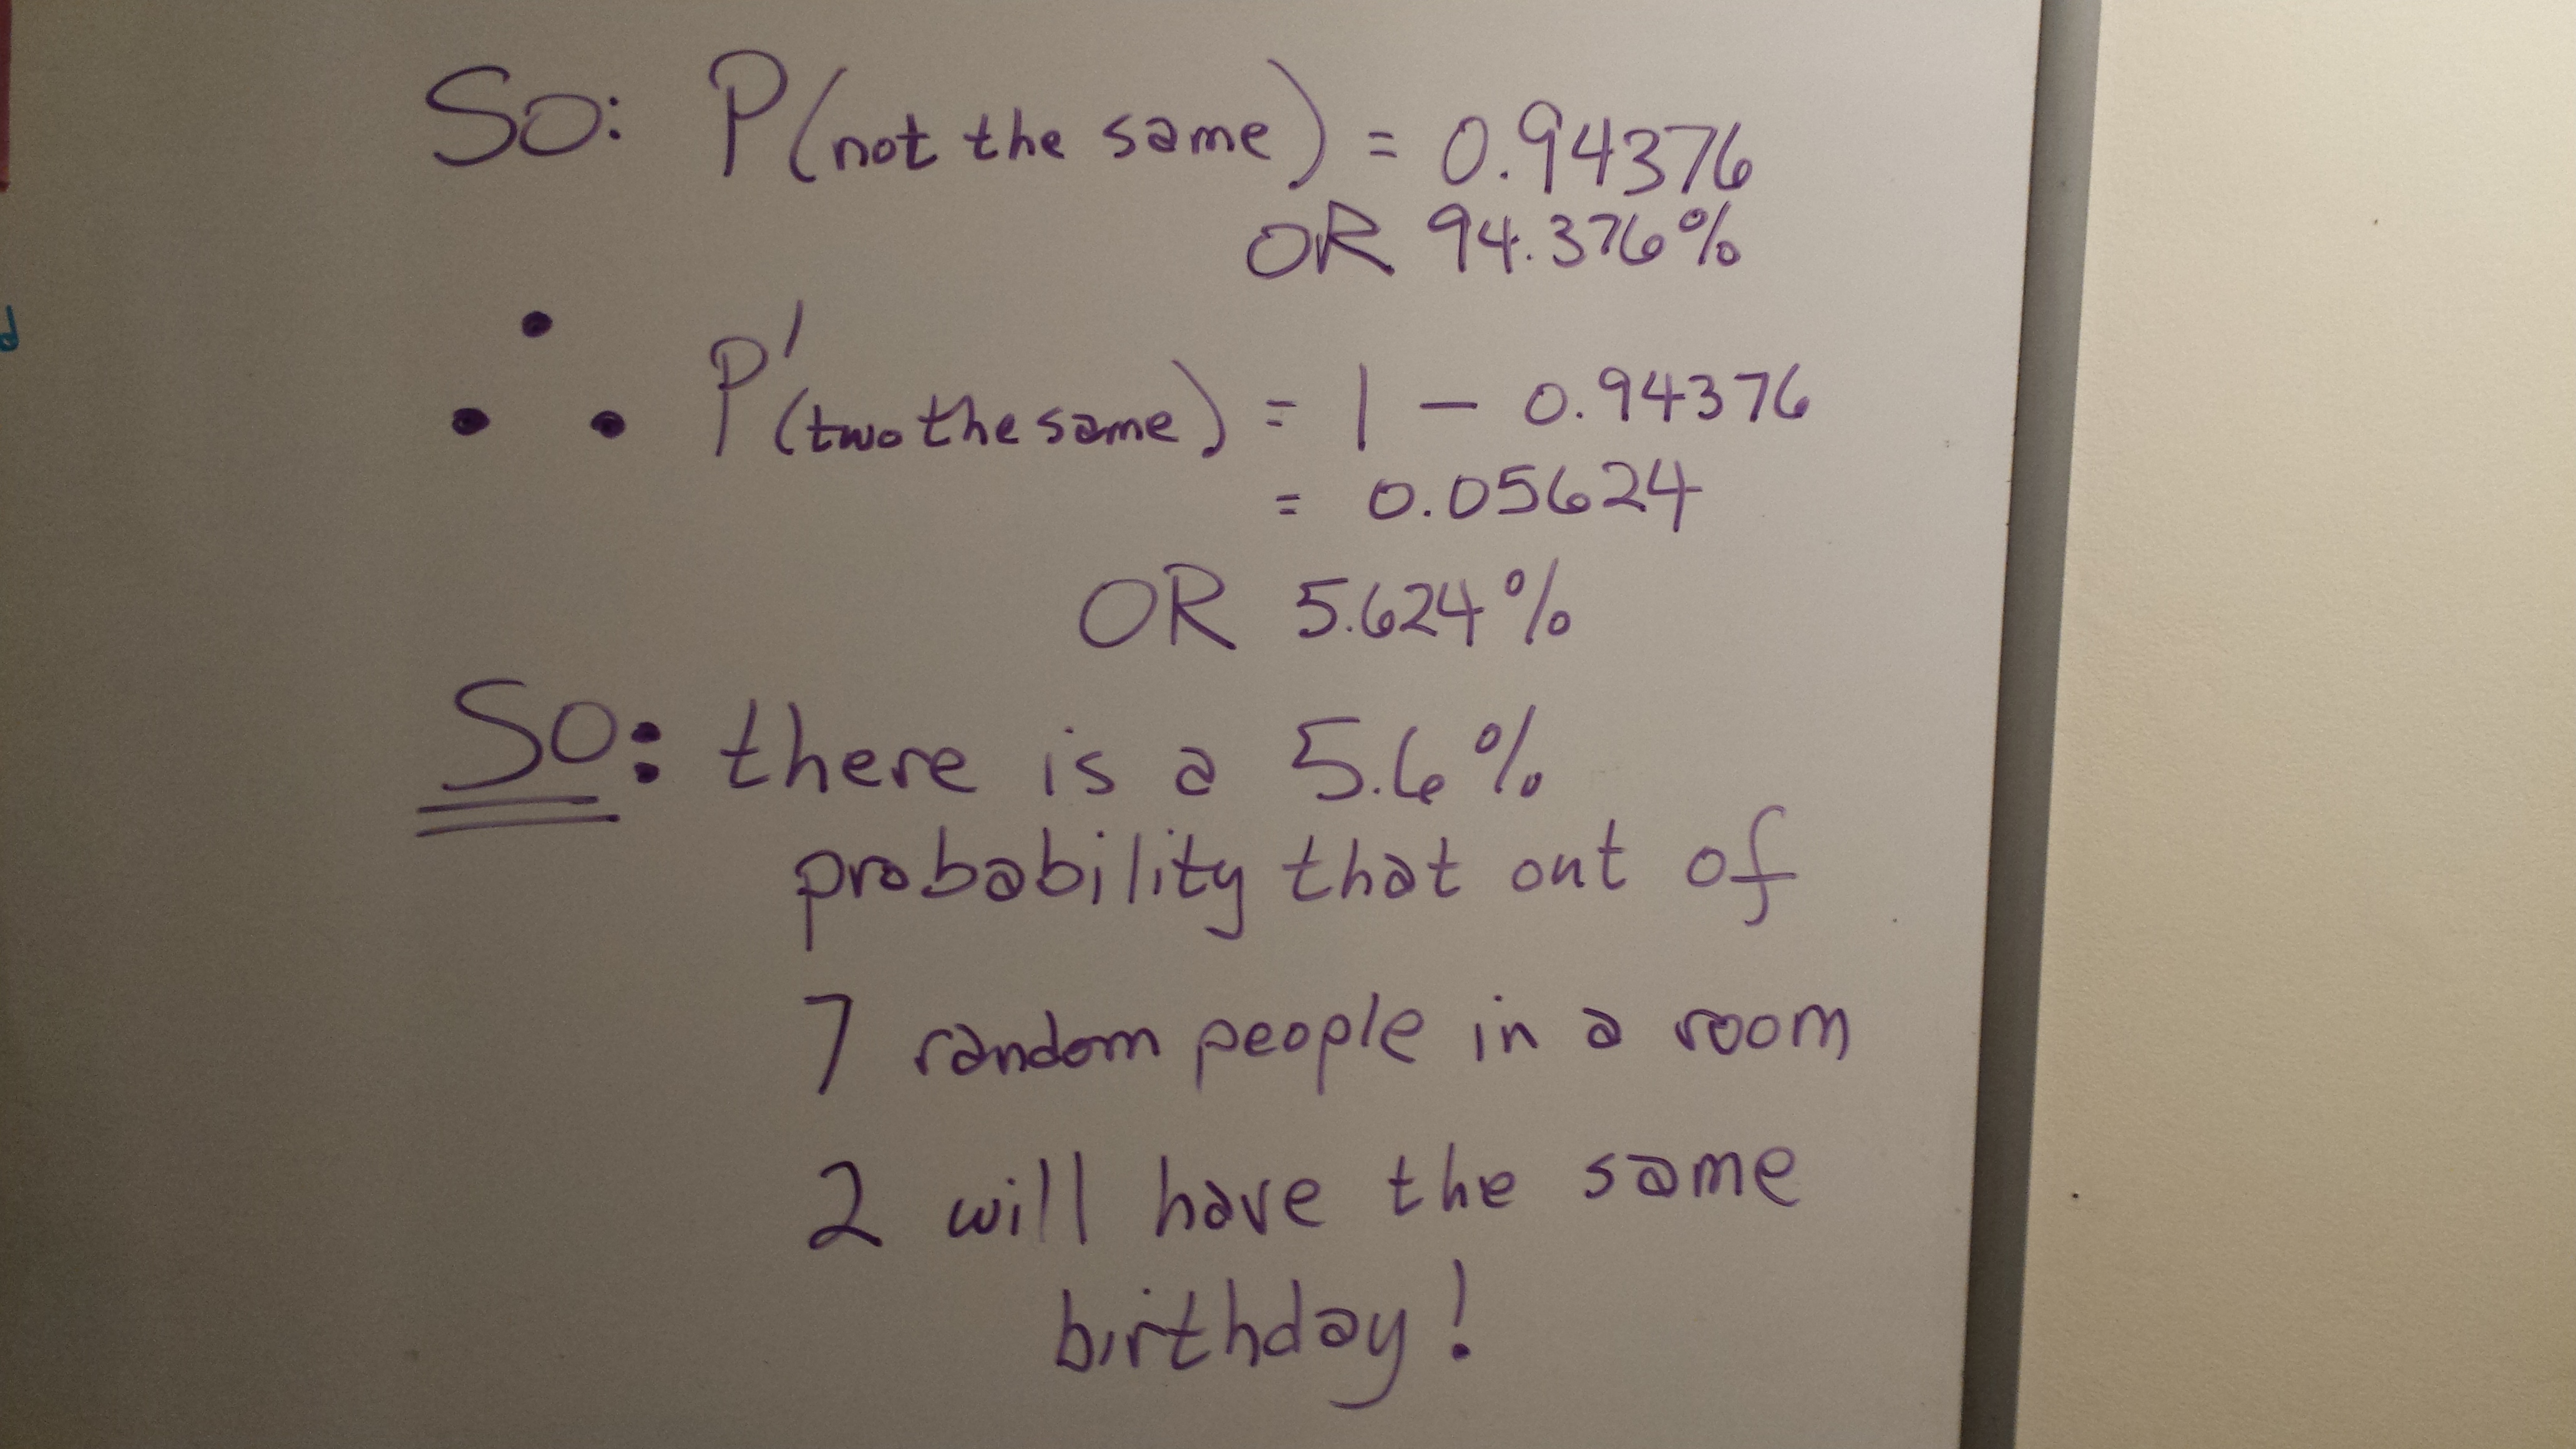 So: P(not the same) = 0.94376
OR 94.376%
∴ P'(two the same) = 1 - 0.94376
= 0.05624
OR 5.624%
So: there is a 5.6%
probability that out of
7 random people in a room
2 will have the same
birthday!